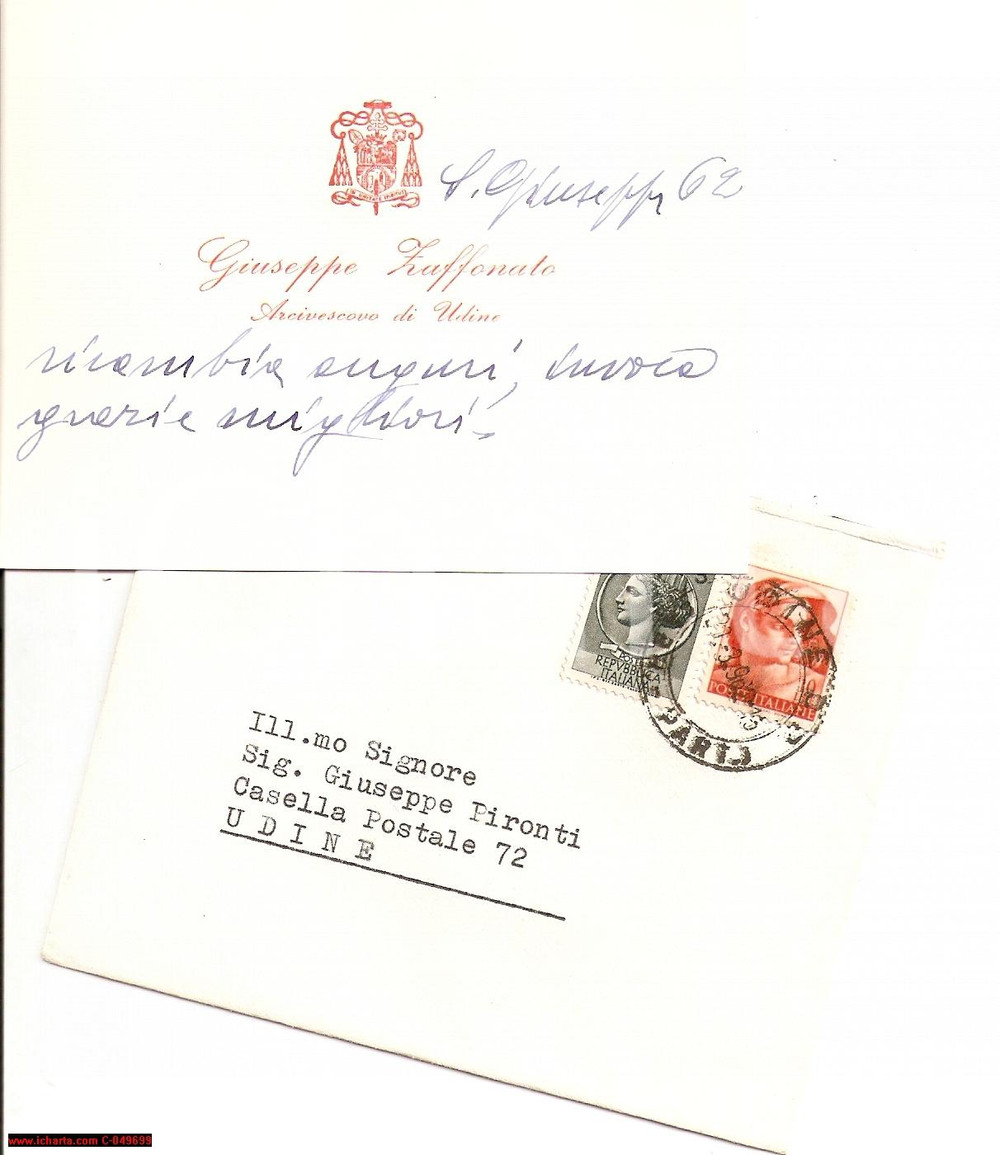 S. Giuseppe 62
Giuseppe Zaffonato
Arcivescovo di Udine
ricambia auguri, invoca
grazie migliori.
POSTE
REPVBBLICA
ITALIANA
POSTE ITALIANE
UDINE
PARI
Ill.mo Signore
Sig. Giuseppe Pironti
Casella Postale 72
UDINE
www.icharta.com C-049699